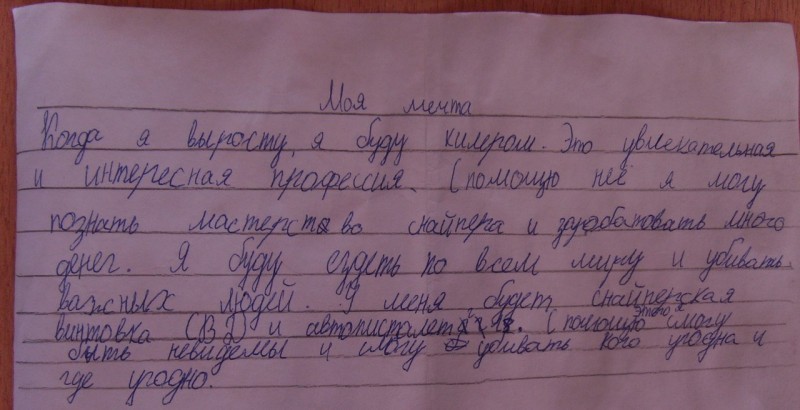 Моя мечта
Когда я выросту, я буду килером. Это увлекательная
и интересная профессия. С помощю неё я могу
познать мастерство снайпера и заробатовать много
денег. Я буду ездеть по всем миру и убивать
важных людей. У меня будет снайперская
винтовка (В2) и автопистолет. С помощю этого я смогу
быть невидемы и смогу убивать кого угодна и
где угодно.